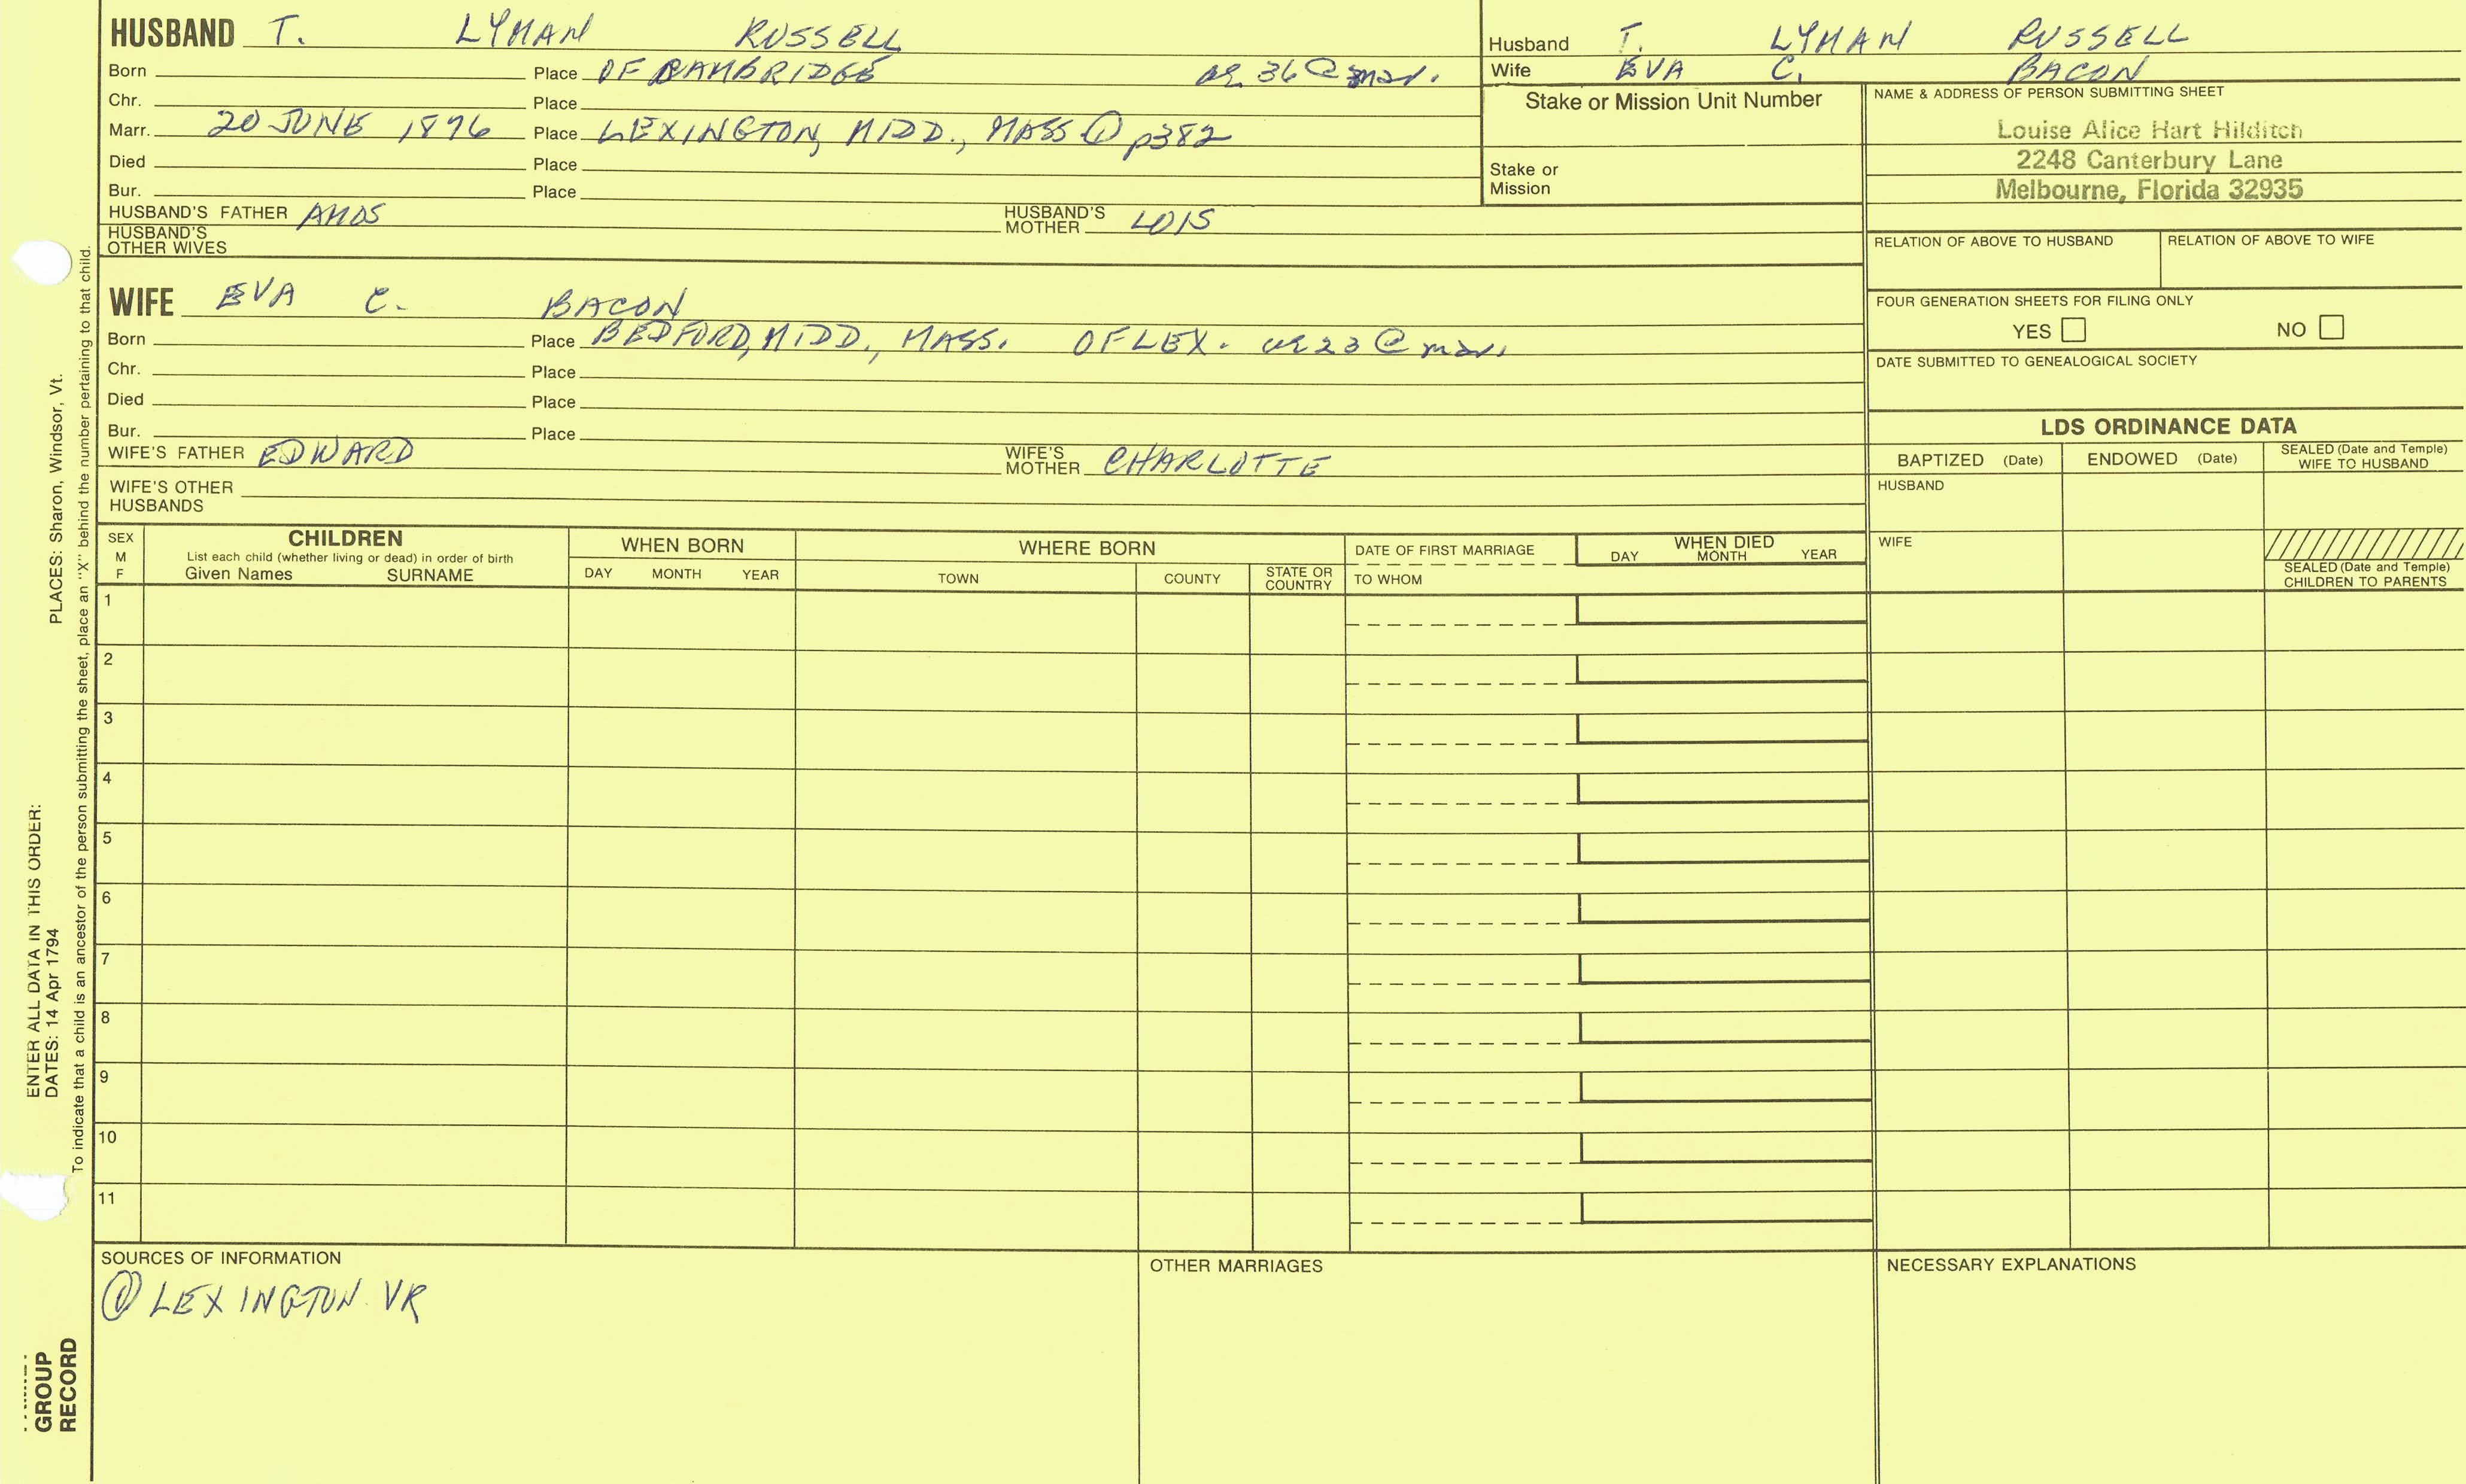 HUSBAND T. LYMAN RUSSELL
Born Place OF CAMBRIDGE ae 36 @ mar.
Chr. Place
Marr. 20 JUNE 1896 Place LEXINGTON, MIDD., MASS ① p382
Died Place
Bur. Place
HUSBAND'S FATHER AMOS HUSBAND'S MOTHER LOIS
HUSBAND'S OTHER WIVES
Husband T. LYMAN RUSSELL
Wife EVA C. BACON
Stake or Mission Unit Number
Stake or
Mission
NAME & ADDRESS OF PERSON SUBMITTING SHEET
Louise Alice Hart Hilditch
2248 Canterbury Lane
Melbourne, Florida 32935
RELATION OF ABOVE TO HUSBAND RELATION OF ABOVE TO WIFE
WIFE EVA C. BACON
Born Place BEDFORD, MIDD., MASS. OF LEX. ae 23 @ mar.
Chr. Place
Died Place
Bur. Place
WIFE'S FATHER EDWARD WIFE'S MOTHER CHARLOTTE
WIFE'S OTHER
HUSBANDS
FOUR GENERATION SHEETS FOR FILING ONLY
YES NO
DATE SUBMITTED TO GENEALOGICAL SOCIETY
LDS ORDINANCE DATA
BAPTIZED (Date) ENDOWED (Date) SEALED (Date and Temple) WIFE TO HUSBAND
HUSBAND
WIFE
SEALED (Date and Temple)
CHILDREN TO PARENTS
SEX
M
F
CHILDREN
List each child (whether living or dead) in order of birth
Given Names SURNAME
WHEN BORN
DAY MONTH YEAR
WHERE BORN
TOWN COUNTY STATE OR COUNTRY
DATE OF FIRST MARRIAGE
TO WHOM
WHEN DIED
DAY MONTH YEAR
1
2
3
4
5
6
7
8
9
10
11
SOURCES OF INFORMATION
① LEXINGTON VR
OTHER MARRIAGES
NECESSARY EXPLANATIONS
ENTER ALL DATA IN THIS ORDER:
DATES: 14 Apr 1794 PLACES: Sharon, Windsor, Vt.
To indicate that a child is an ancestor of the person submitting the sheet, place an "X" behind the number pertaining to that child.
GROUP
RECORD